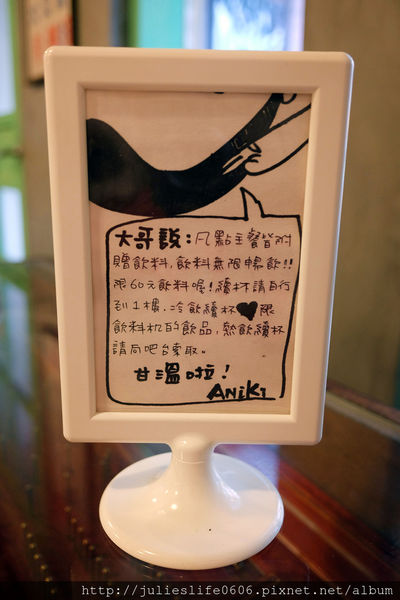 大哥說：凡點主餐皆附
贈飲料，飲料無限暢飲!!
限60元飲料喔！續杯請自行
到1樓，冷飲續杯♥限
飲料机的飲品，熱飲續杯
請向吧台索取。
甘溫啦！
ANiKi
http://julieslife0606.pixnet.net/album